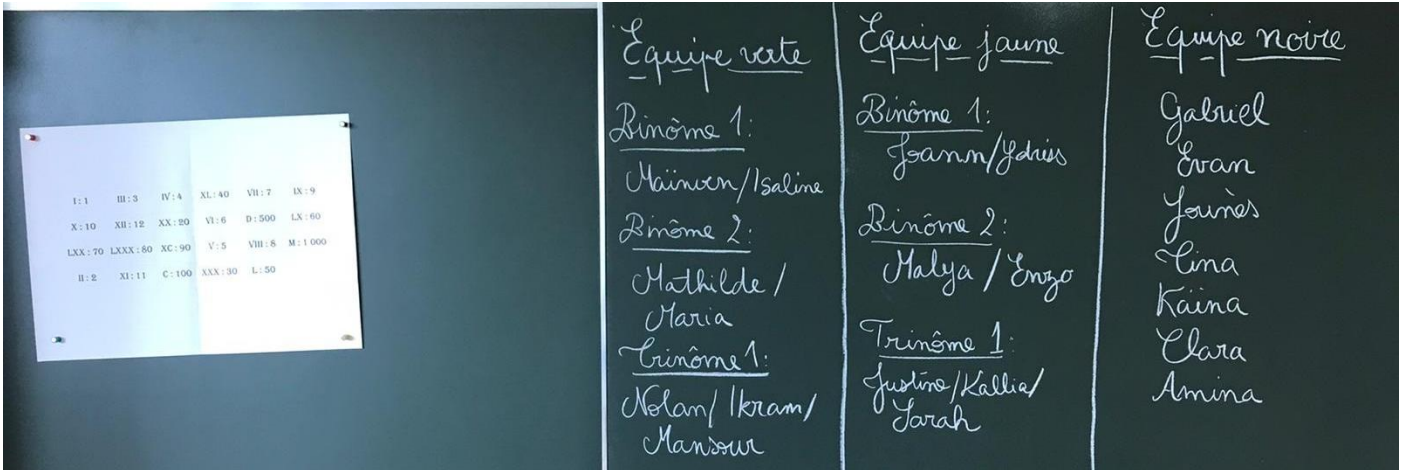 I : 1 III : 3 IV : 4 XL : 40 VII : 7 IX : 9
X : 10 XII : 12 XX : 20 VI : 6 D : 500 LX : 60
LXX : 70 LXXX : 80 XC : 90 V : 5 VIII : 8 M : 1 000
II : 2 XI : 11 C : 100 XXX : 30 L : 50
Équipe verte
Binôme 1:
Maïnwen/Isaline
Binôme 2:
Mathilde /
Maria
Trinôme 1:
Nolan/ Ikram/
Mansour
Équipe jaune
Binôme 1:
Joann/Ydriss
Binôme 2:
Malya / Enzo
Trinôme 1:
Justine/Kallia/
Sarah
Équipe noire
Gabriel
Évan
Younès
Tina
Kaïna
Clara
Amina